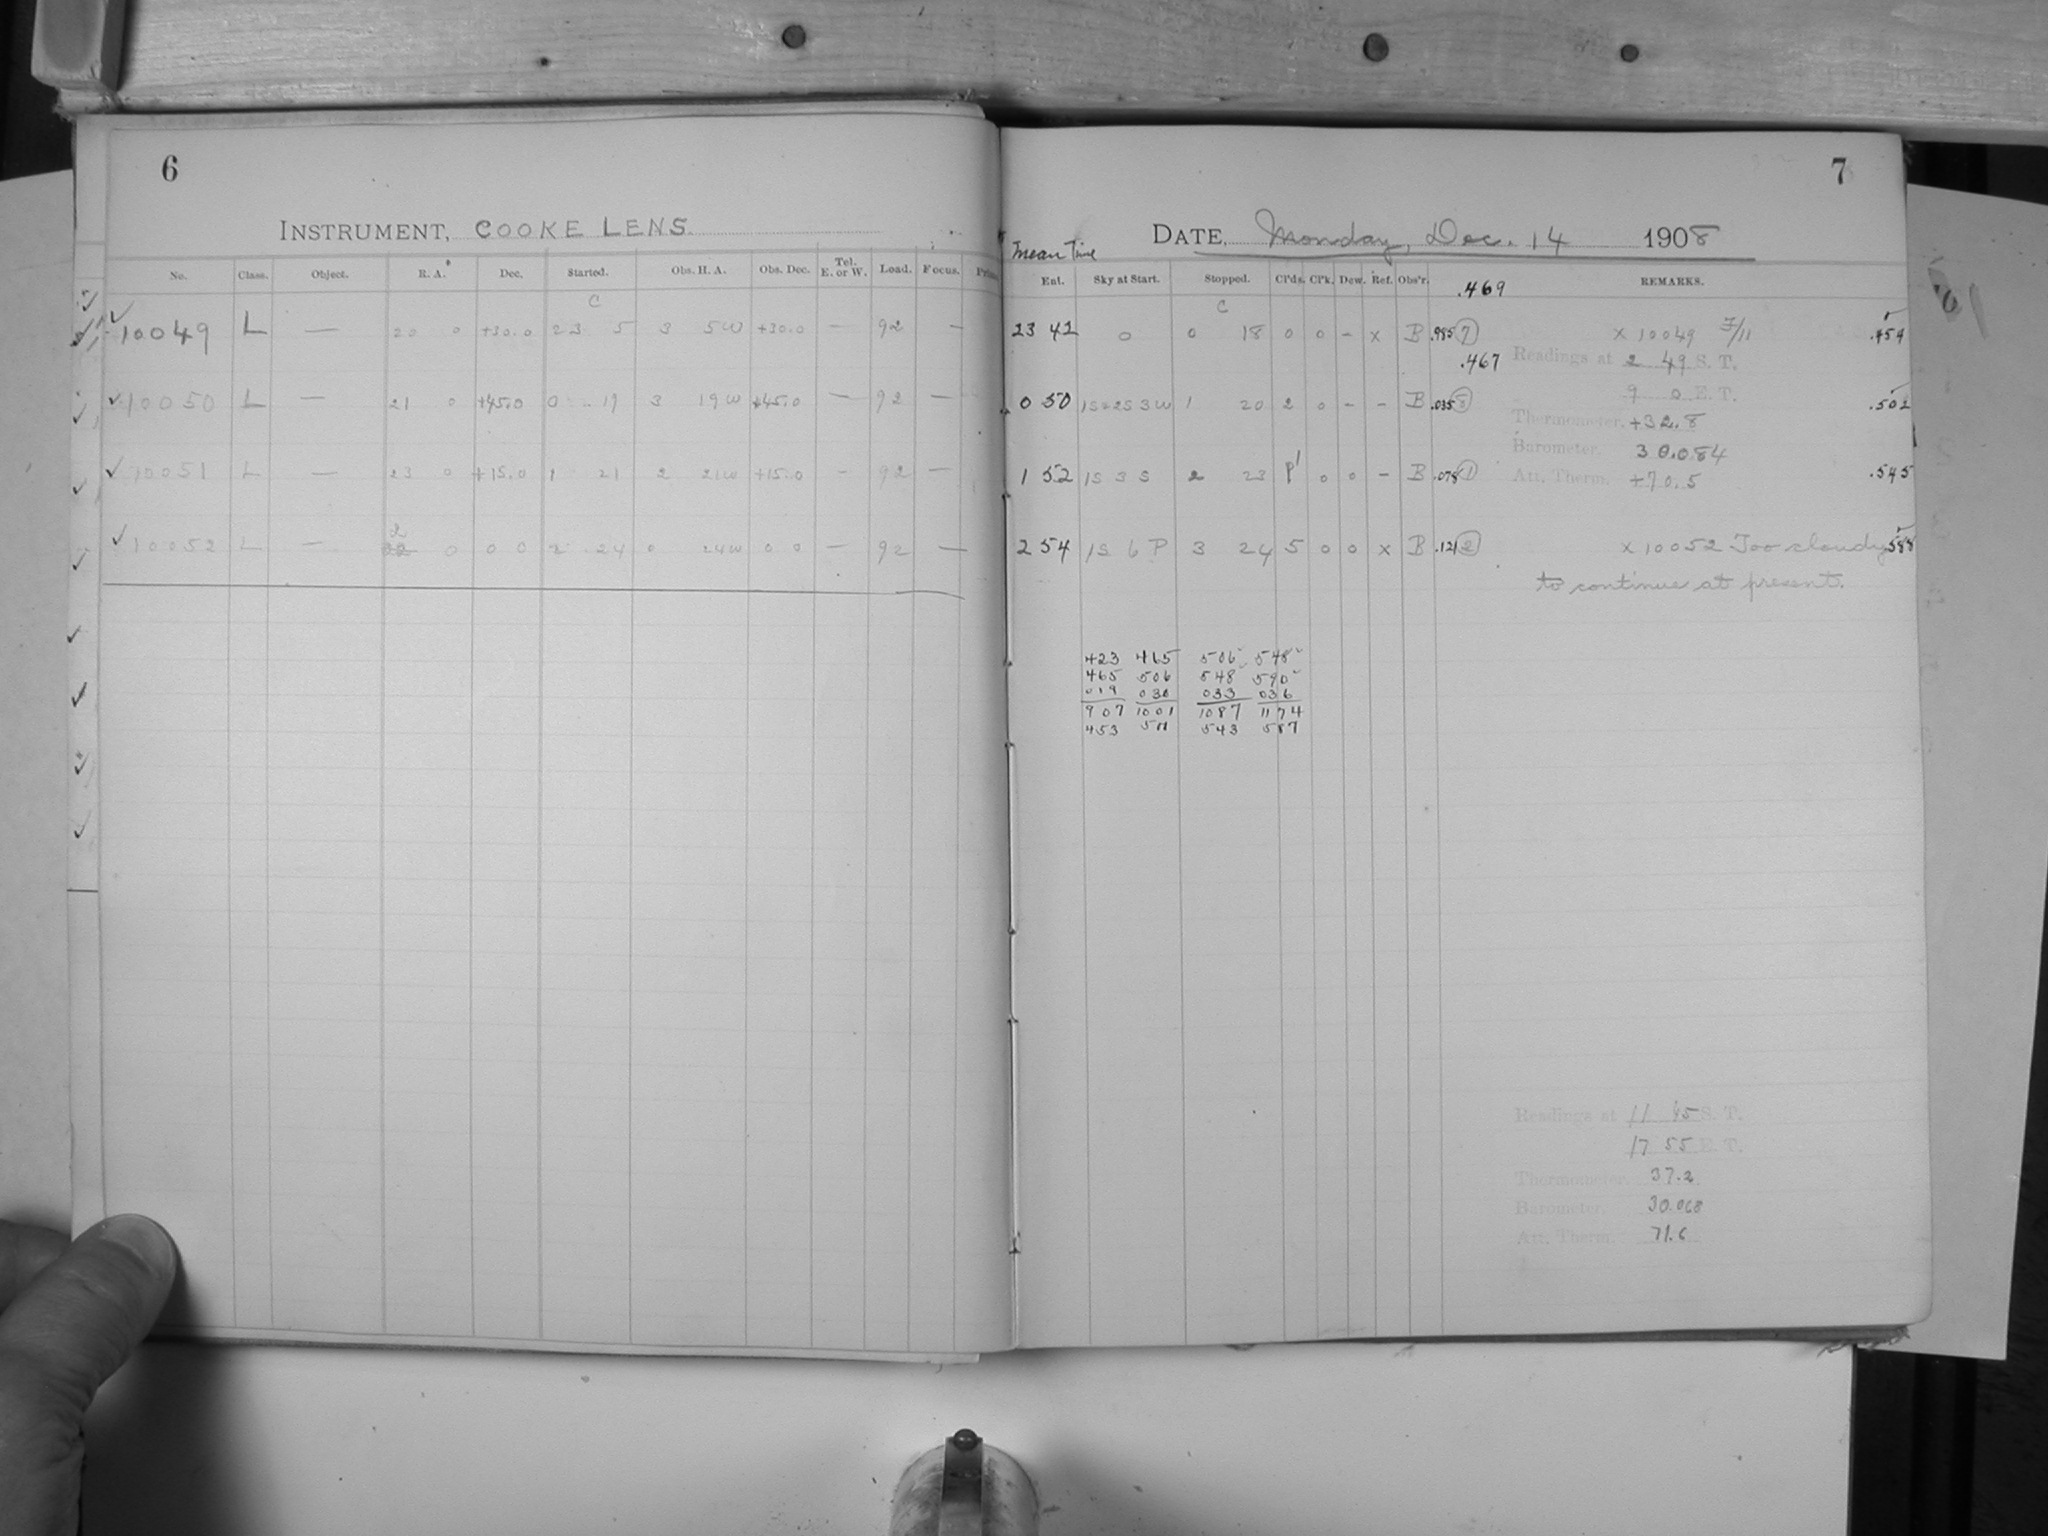 6
INSTRUMENT, COOKE LENS
No. Class. Object. R. A. Dec. Started. Obs. H. A. Obs. Dec. Tel. E. or W. Load. Focus.
C
10049 L — 20 0 +30.0 23 5 3 5W +30.0 — 92 —
10050 L — 21 0 +45.0 0 19 3 19W +45.0 — 92 —
10051 L — 23 0 +15.0 1 21 2 21W +15.0 — 92 —
2
10052 L — 0 0 0 2 24 0 24W 0 0 — 92 —
7
DATE, Monday, Dec. 14 1908
Mean Time
Ent. Sky at Start. Stopped. Cl'ds. Cl'k. Dew. Ref. Obs'r. .469 REMARKS.
C
23 42 0 0 18 0 0 – x B .985 7 x 10049 F/11 .454
.467 Readings at 2 49 S. T.
9 0 E. T.
0 50 1S 2S 3W 1 20 2 0 – – B .035 8 .502
Thermometer. +32.8
Barometer. 30.084
1 52 1S 3 S 2 23 P' 0 0 – B .078 1 Att. Therm. +70.5 .545
2 54 1S 6 P 3 24 5 0 0 x B .121 2 x 10052 Too cloudy .588
to continue at present.
423 465 506 548
465 506 548 590
019 030 033 036
907 1001 1087 1174
453 543 587
Readings at 11 45 S. T.
17 55 E. T.
Thermometer. 37.2
Barometer. 30.068
Att. Therm. 71.6